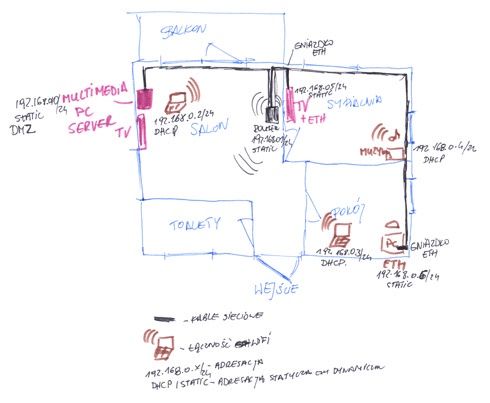 BALKON
GNIAZDKO
ETH
192.168.0.10/24
STATIC
DMZ
MULTIMEDIA
PC
SERVER
TV
192.168.0.2/24
DHCP
SALON
ROUTER
STATIC
192.168.0.5/24
STATIC
TV
+ ETH
SYPIALNIA
MUZYKA
192.168.0.4/24
DHCP
TOALETY
POKÓJ
192.168.0.3/24
DHCP.
PC
ETH
GNIAZDKO
ETH
192.168.0.6/24
STATIC
WEJŚCIE
- KABLE SIECIOWE
- ŁĄCZNOŚĆ WIFI
192.168.0.X/24 - ADRESACJA
DHCP / STATIC - ADRESACJA STATYCZNA DYNAMICZNA